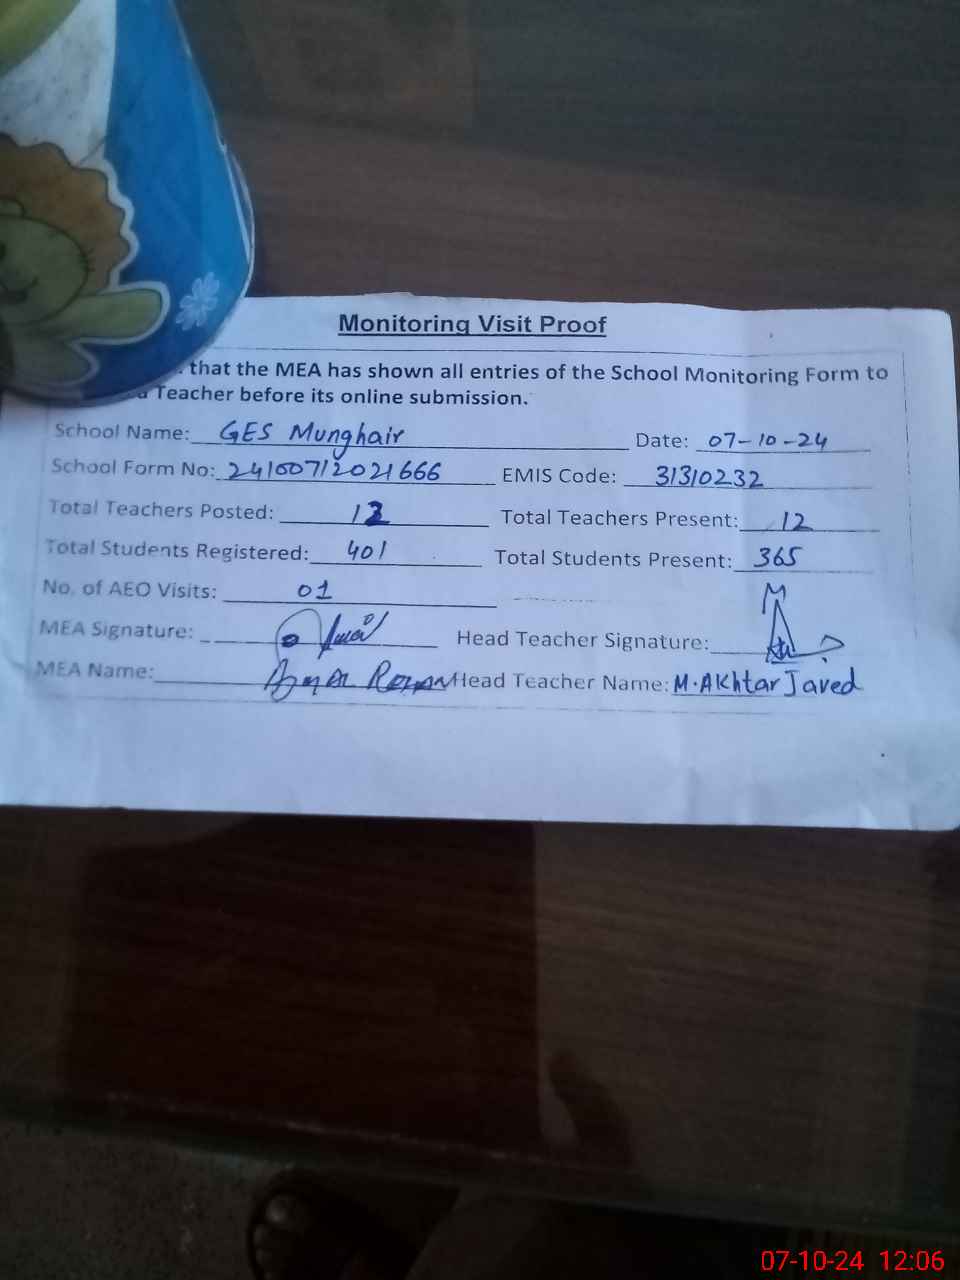 Monitoring Visit Proof
that the MEA has shown all entries of the School Monitoring Form to
Teacher before its online submission.
School Name: GES Munghair Date: 07-10-24
School Form No: 24100712021666 EMIS Code: 31310232
Total Teachers Posted: Total Teachers Present: 12
Total Students Registered: 401 Total Students Present: 365
No. of AEO Visits: 01
MEA Signature: Head Teacher Signature:
MEA Name: Head Teacher Name: M.Akhtar Javed
07-10-24 12:06